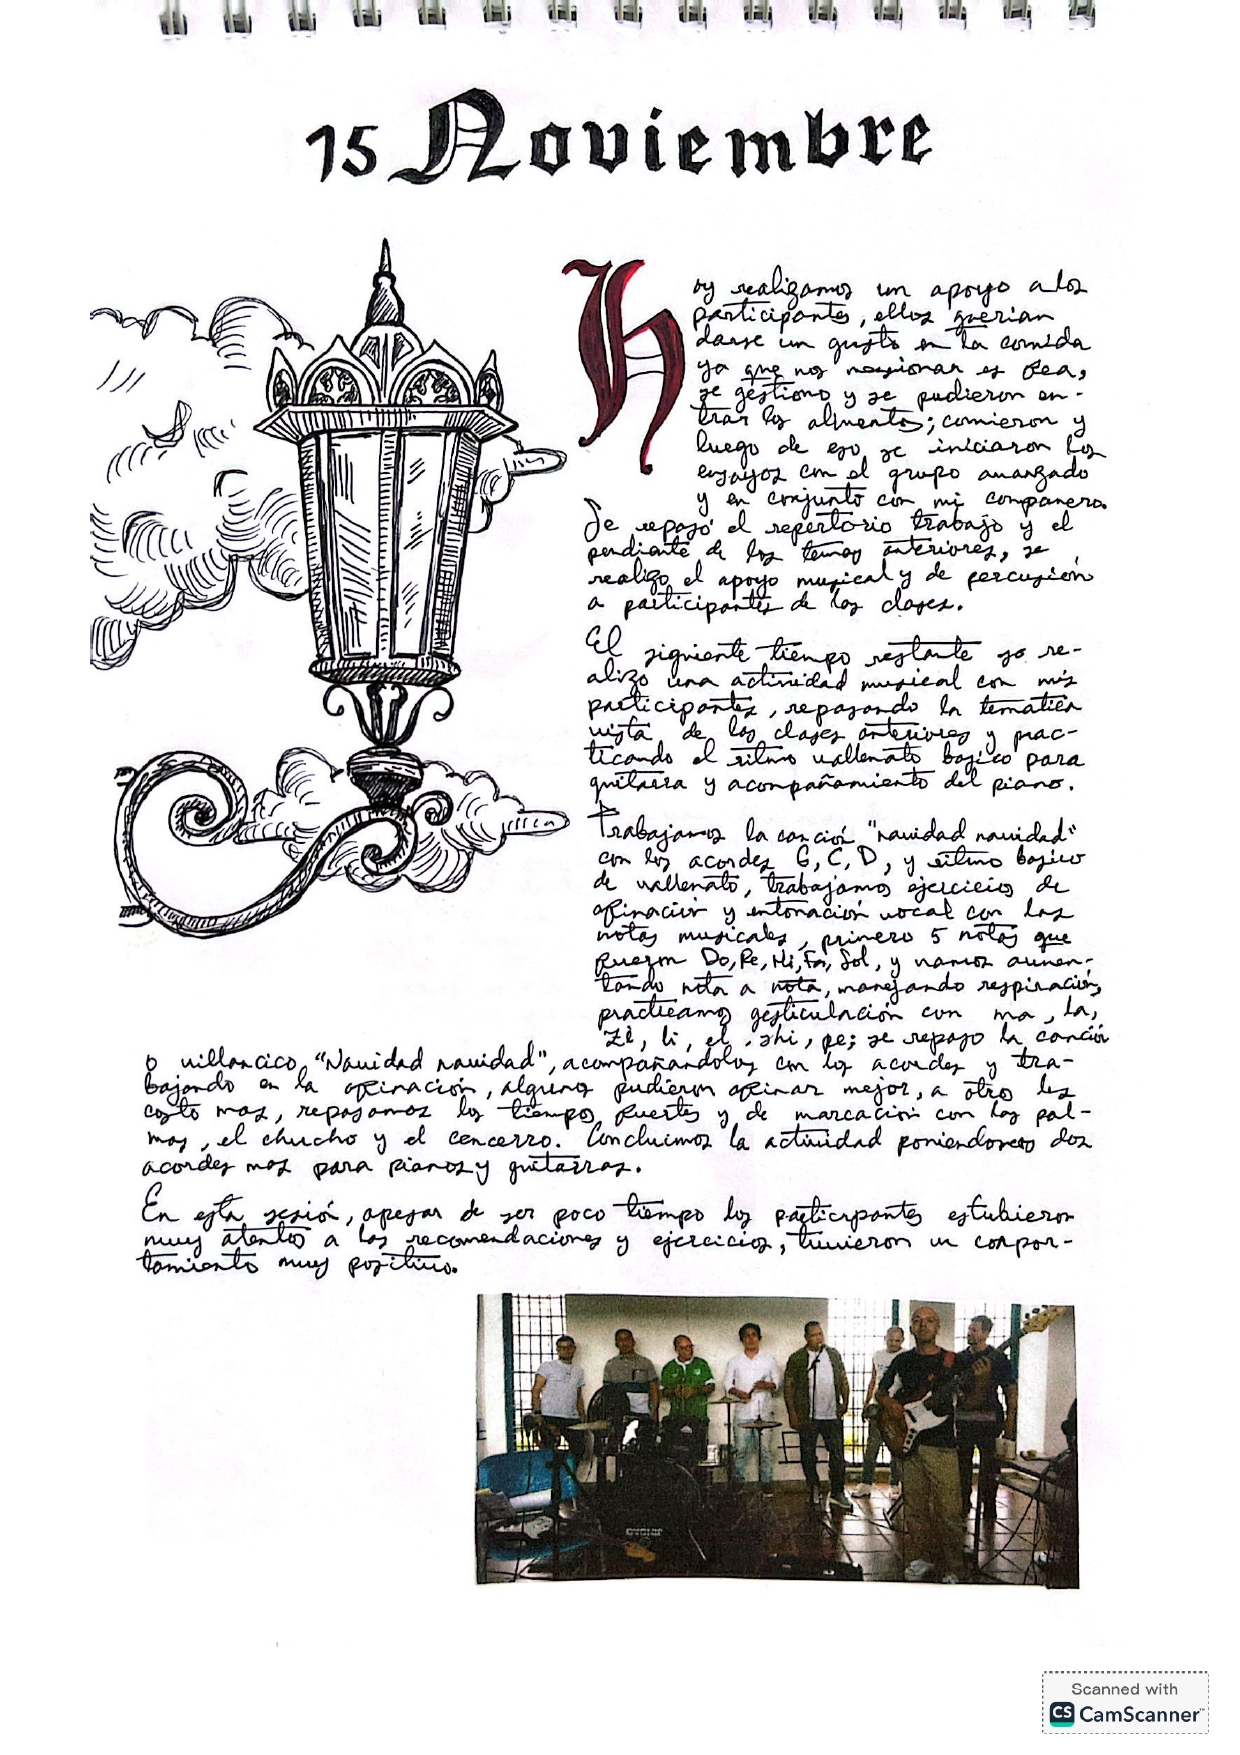 15 Noviembre
Hoy realizamos un apoyo a los
participantes, ellos querian
darse un gusto en la comida
ya que nos es fea,
se gestiono y se pudieron en-
trar los alimentos; comieron y
luego de eso se iniciaron los
ensayos con el grupo avanzado
y en conjunto con mi compañero.
Se repasó el repertorio trabajo y el
pendiente de los temas anteriores, se
realizo el apoyo musical y de percusión
a participantes de las clases.
El siguiente tiempo restante yo re-
alizo una actividad musical con mis
participantes, repasando la tematica
vista de las clases anteriores y prac-
ticando el ritmo vallenato basico para
guitarra y acompañamiento del piano.
Trabajamos la canción "navidad navidad"
con los acordes G, C, D, y ritmo basico
de vallenato, trabajamos ejercicios de
afinación y entonación vocal con las
notas musicales, primero 5 notas que
fueron Do, Re, Mi, Fa, Sol, y vamos aumen-
tando nota a nota, manejando respiración,
practicamos gesticulación con ma, la,
zi, li, el, shi, pe; se repaso la canción
o villancico "Navidad navidad", acompañandolos con los acordes y tra-
bajando en la afinación, algunos pudieron afinar mejor, a otro les
costo mas, repasamos los tiempos fuertes y de marcación con las pal-
mas, el chucho y el cencerro. Concluimos la actividad poniendo dos
acordes mas para pianos y guitarras.
En esta sesión, apesar de ser poco tiempo los participantes estubieron
muy atentos a las recomendaciones y ejercicios, tuvieron un compor-
tamiento muy positivo.
Scanned with
CS CamScanner